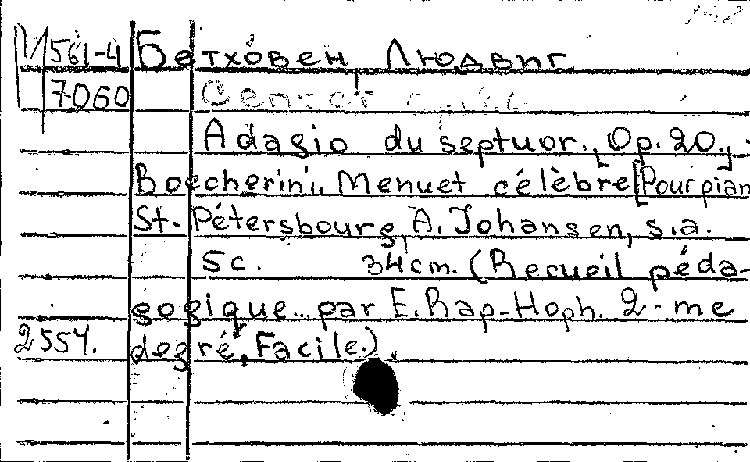 М 561-4 Бетховен Людвиг
7060 Септет
Adagio du septuor., Op. 20.,
Boccherini,, Menuet célèbre [Pour pian
St. Pétersbourg, A. Johansen, s.a.
5 c. 34 cm. (Recueil péda-
gogique par E. Rap-Hoph. 2-me
2554. degré, Facile.).